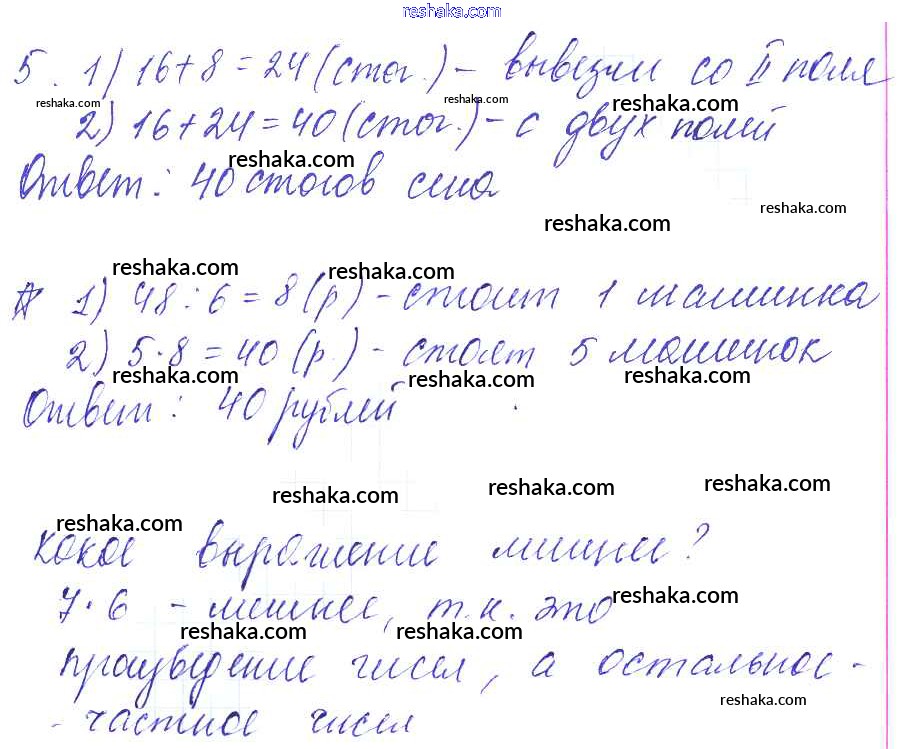 reshaka.com
5. 1) 16+8=24 (стог.) - вывезли со II поля
reshaka.com reshaka.com reshaka.com
2) 16+24=40 (стог.) - с двух полей
reshaka.com
Ответ: 40 стогов сена
reshaka.com reshaka.com
reshaka.com reshaka.com
1) 48:6=8 (р) - стоит 1 машинка
2) 5·8=40 (р.) - стоят 5 машинок
reshaka.com reshaka.com reshaka.com
Ответ: 40 рублей
reshaka.com reshaka.com reshaka.com
reshaka.com
Какое выражение лишнее?
7·6 - лишнее, т.к. это
reshaka.com
reshaka.com reshaka.com
произведение чисел, а остальное -
reshaka.com
- частное чисел